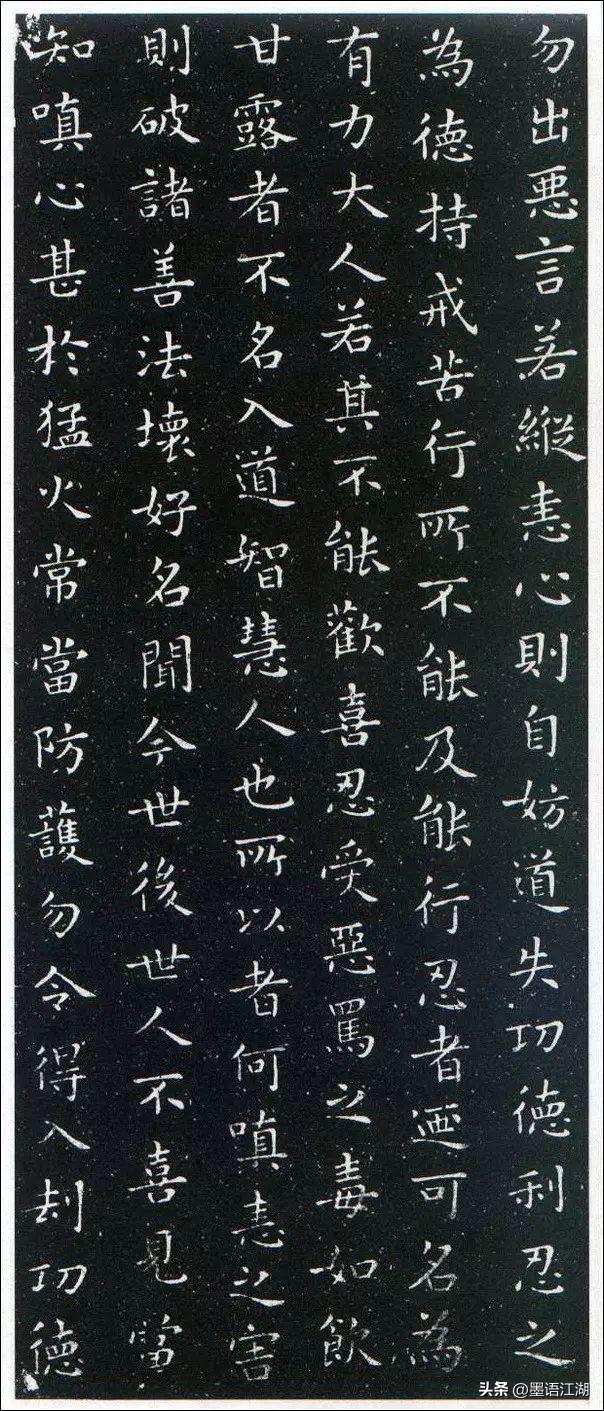 勿出悪言若縱恚心則自妨道失功徳利忍之
為徳持戒苦行所不能及能行忍者迺可名為
有力大人若其不能歡喜忍受惡罵之毒如飲
甘露者不名入道智慧人也所以者何嗔恚之害
則破諸善法壞好名聞今世後世人不喜見當
知嗔心甚於猛火常當防護勿令得入刦功徳
头条@墨语江湖